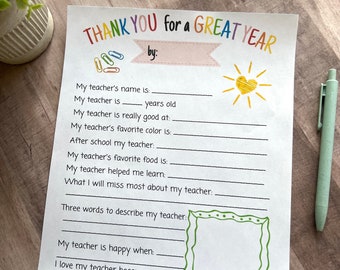 THANK YOU for a GREAT YEAR
by:
My teacher's name is:
My teacher is _____ years old
My teacher is really good at:
My teacher's favorite color is:
After school my teacher:
My teacher's favorite food is:
My teacher helped me learn:
What I will miss most about my teacher:
Three words to describe my teacher:
My teacher is happy when:
I love my teacher